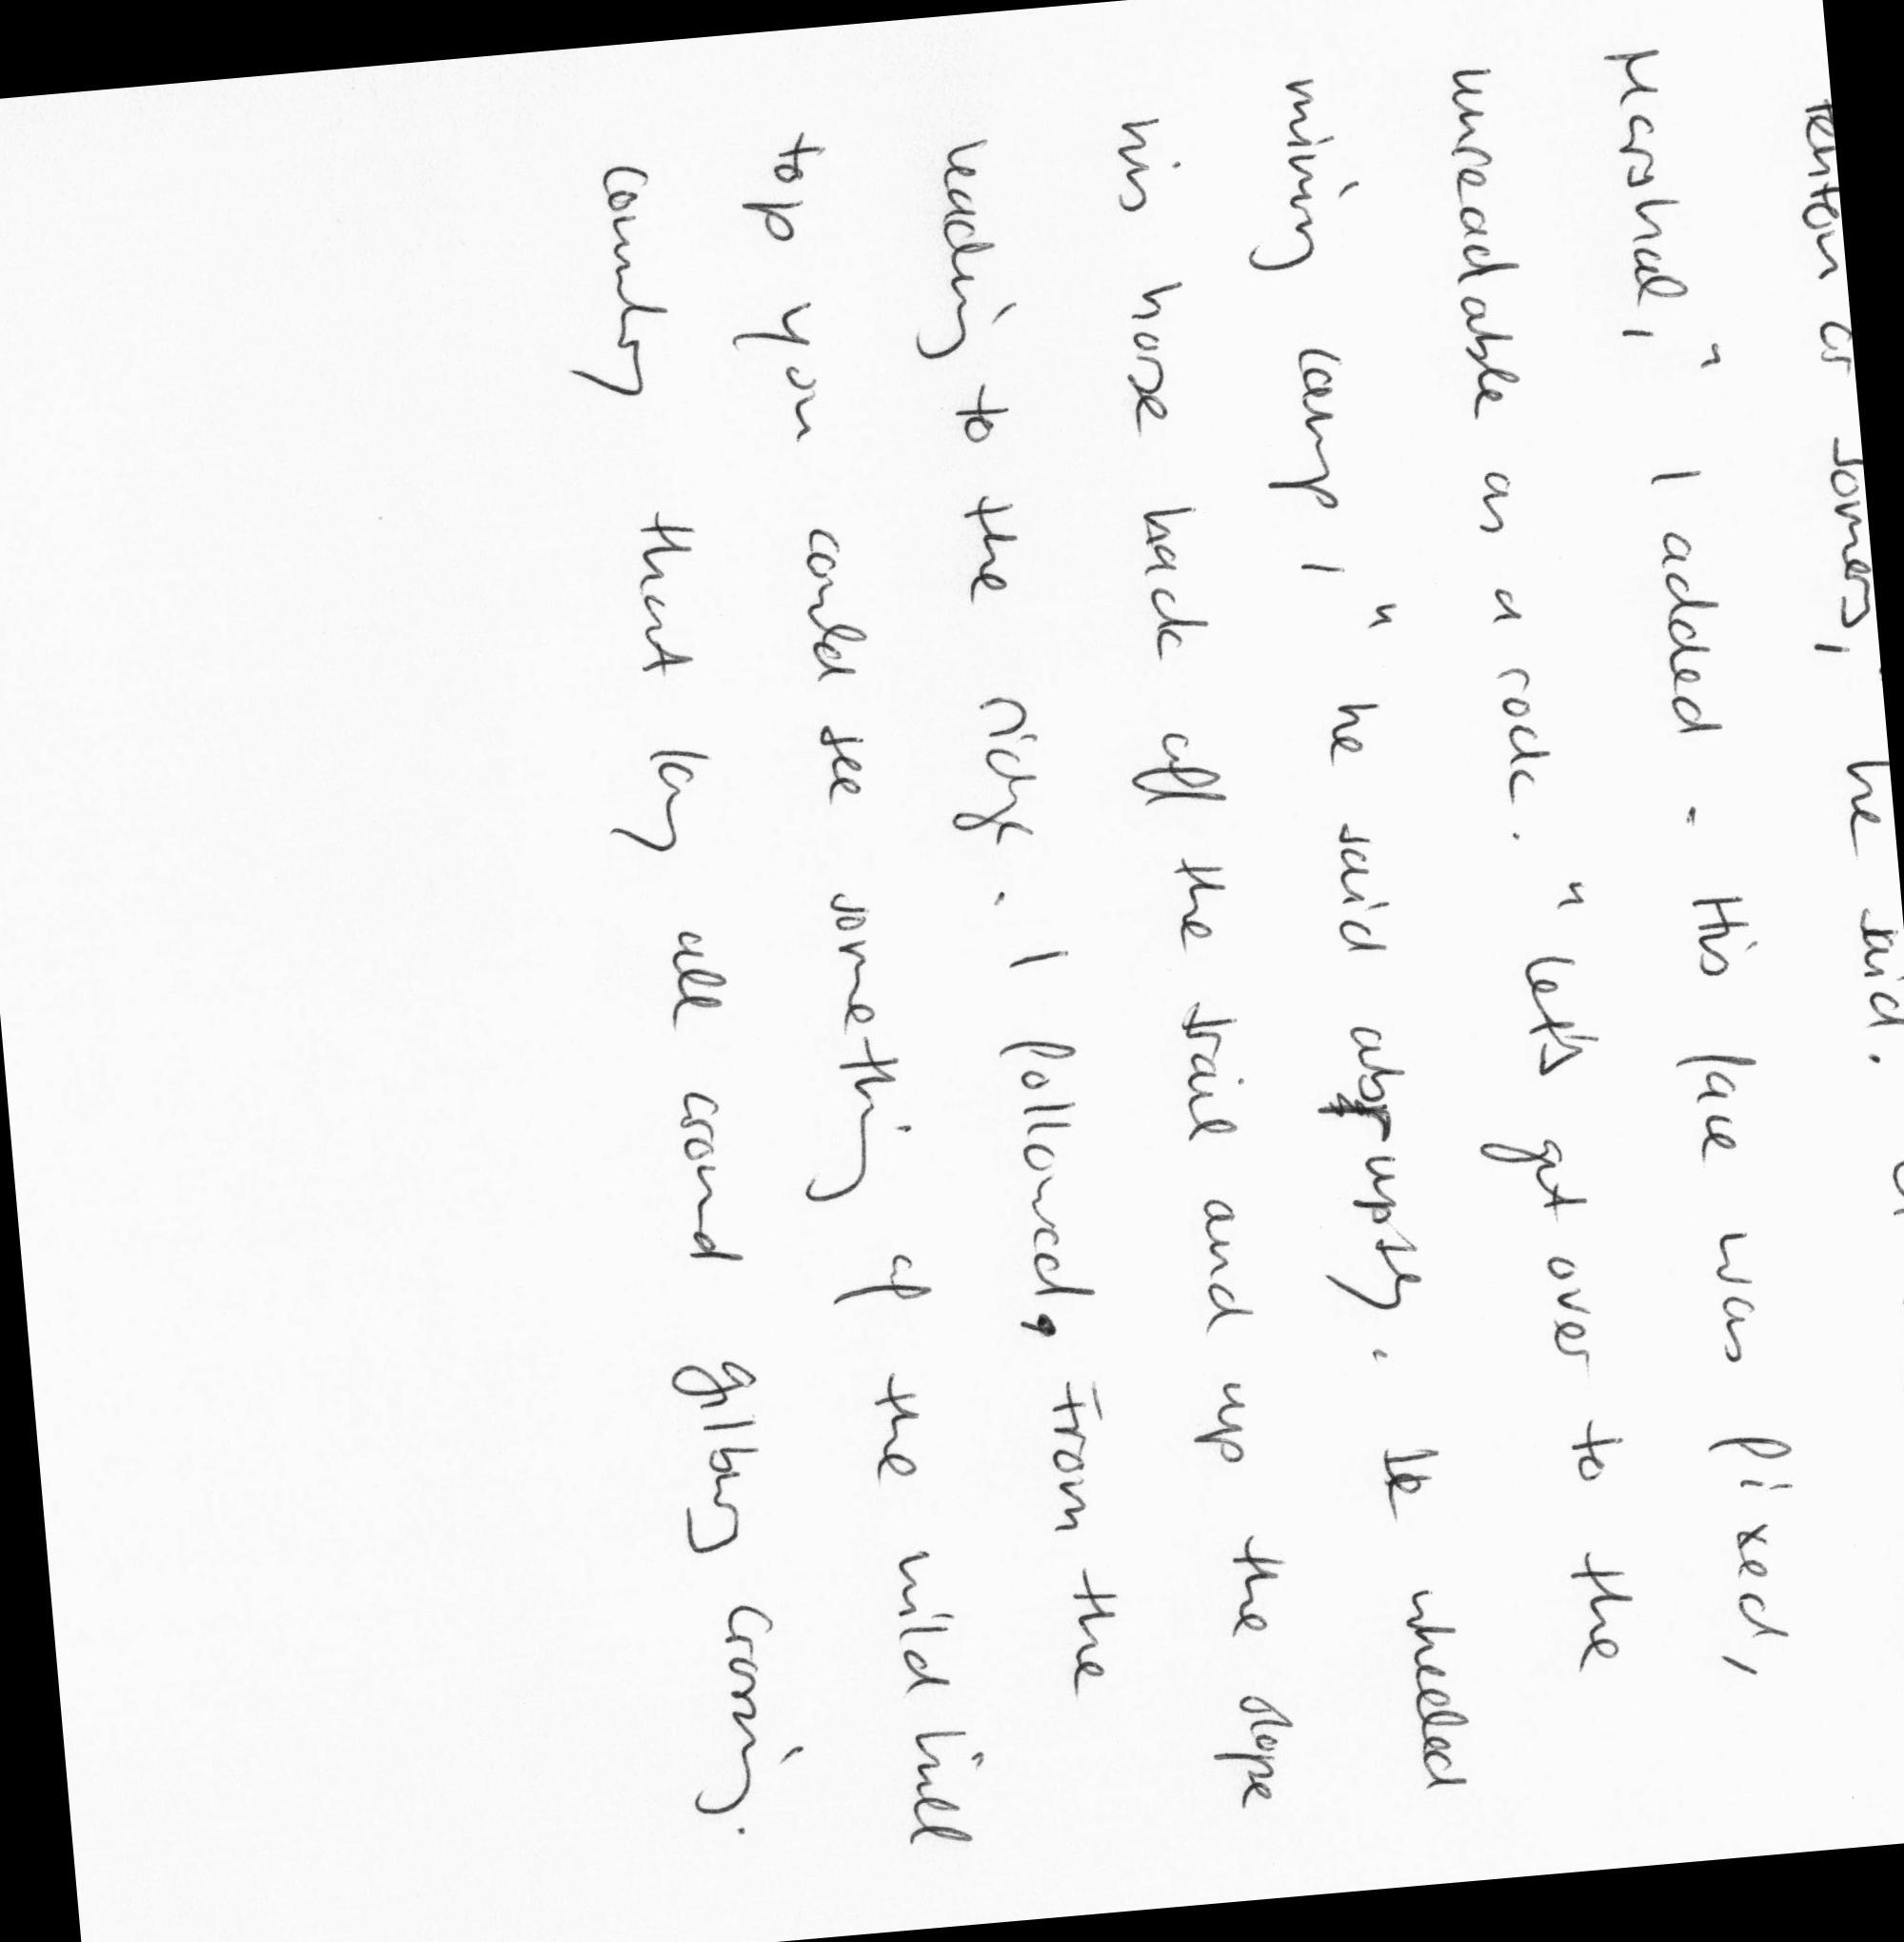 Fenton or Somers," he said.
Marshal," I added. His face was fixed,
unreadable as a rock. "Let's get over to the
mining camp," he said abruptly. He wheeled
his horse back off the trail and up the slope
leading to the ridge. I followed. From the
top you could see something of the wild hill
country that lay all around Gilburg Crossing.